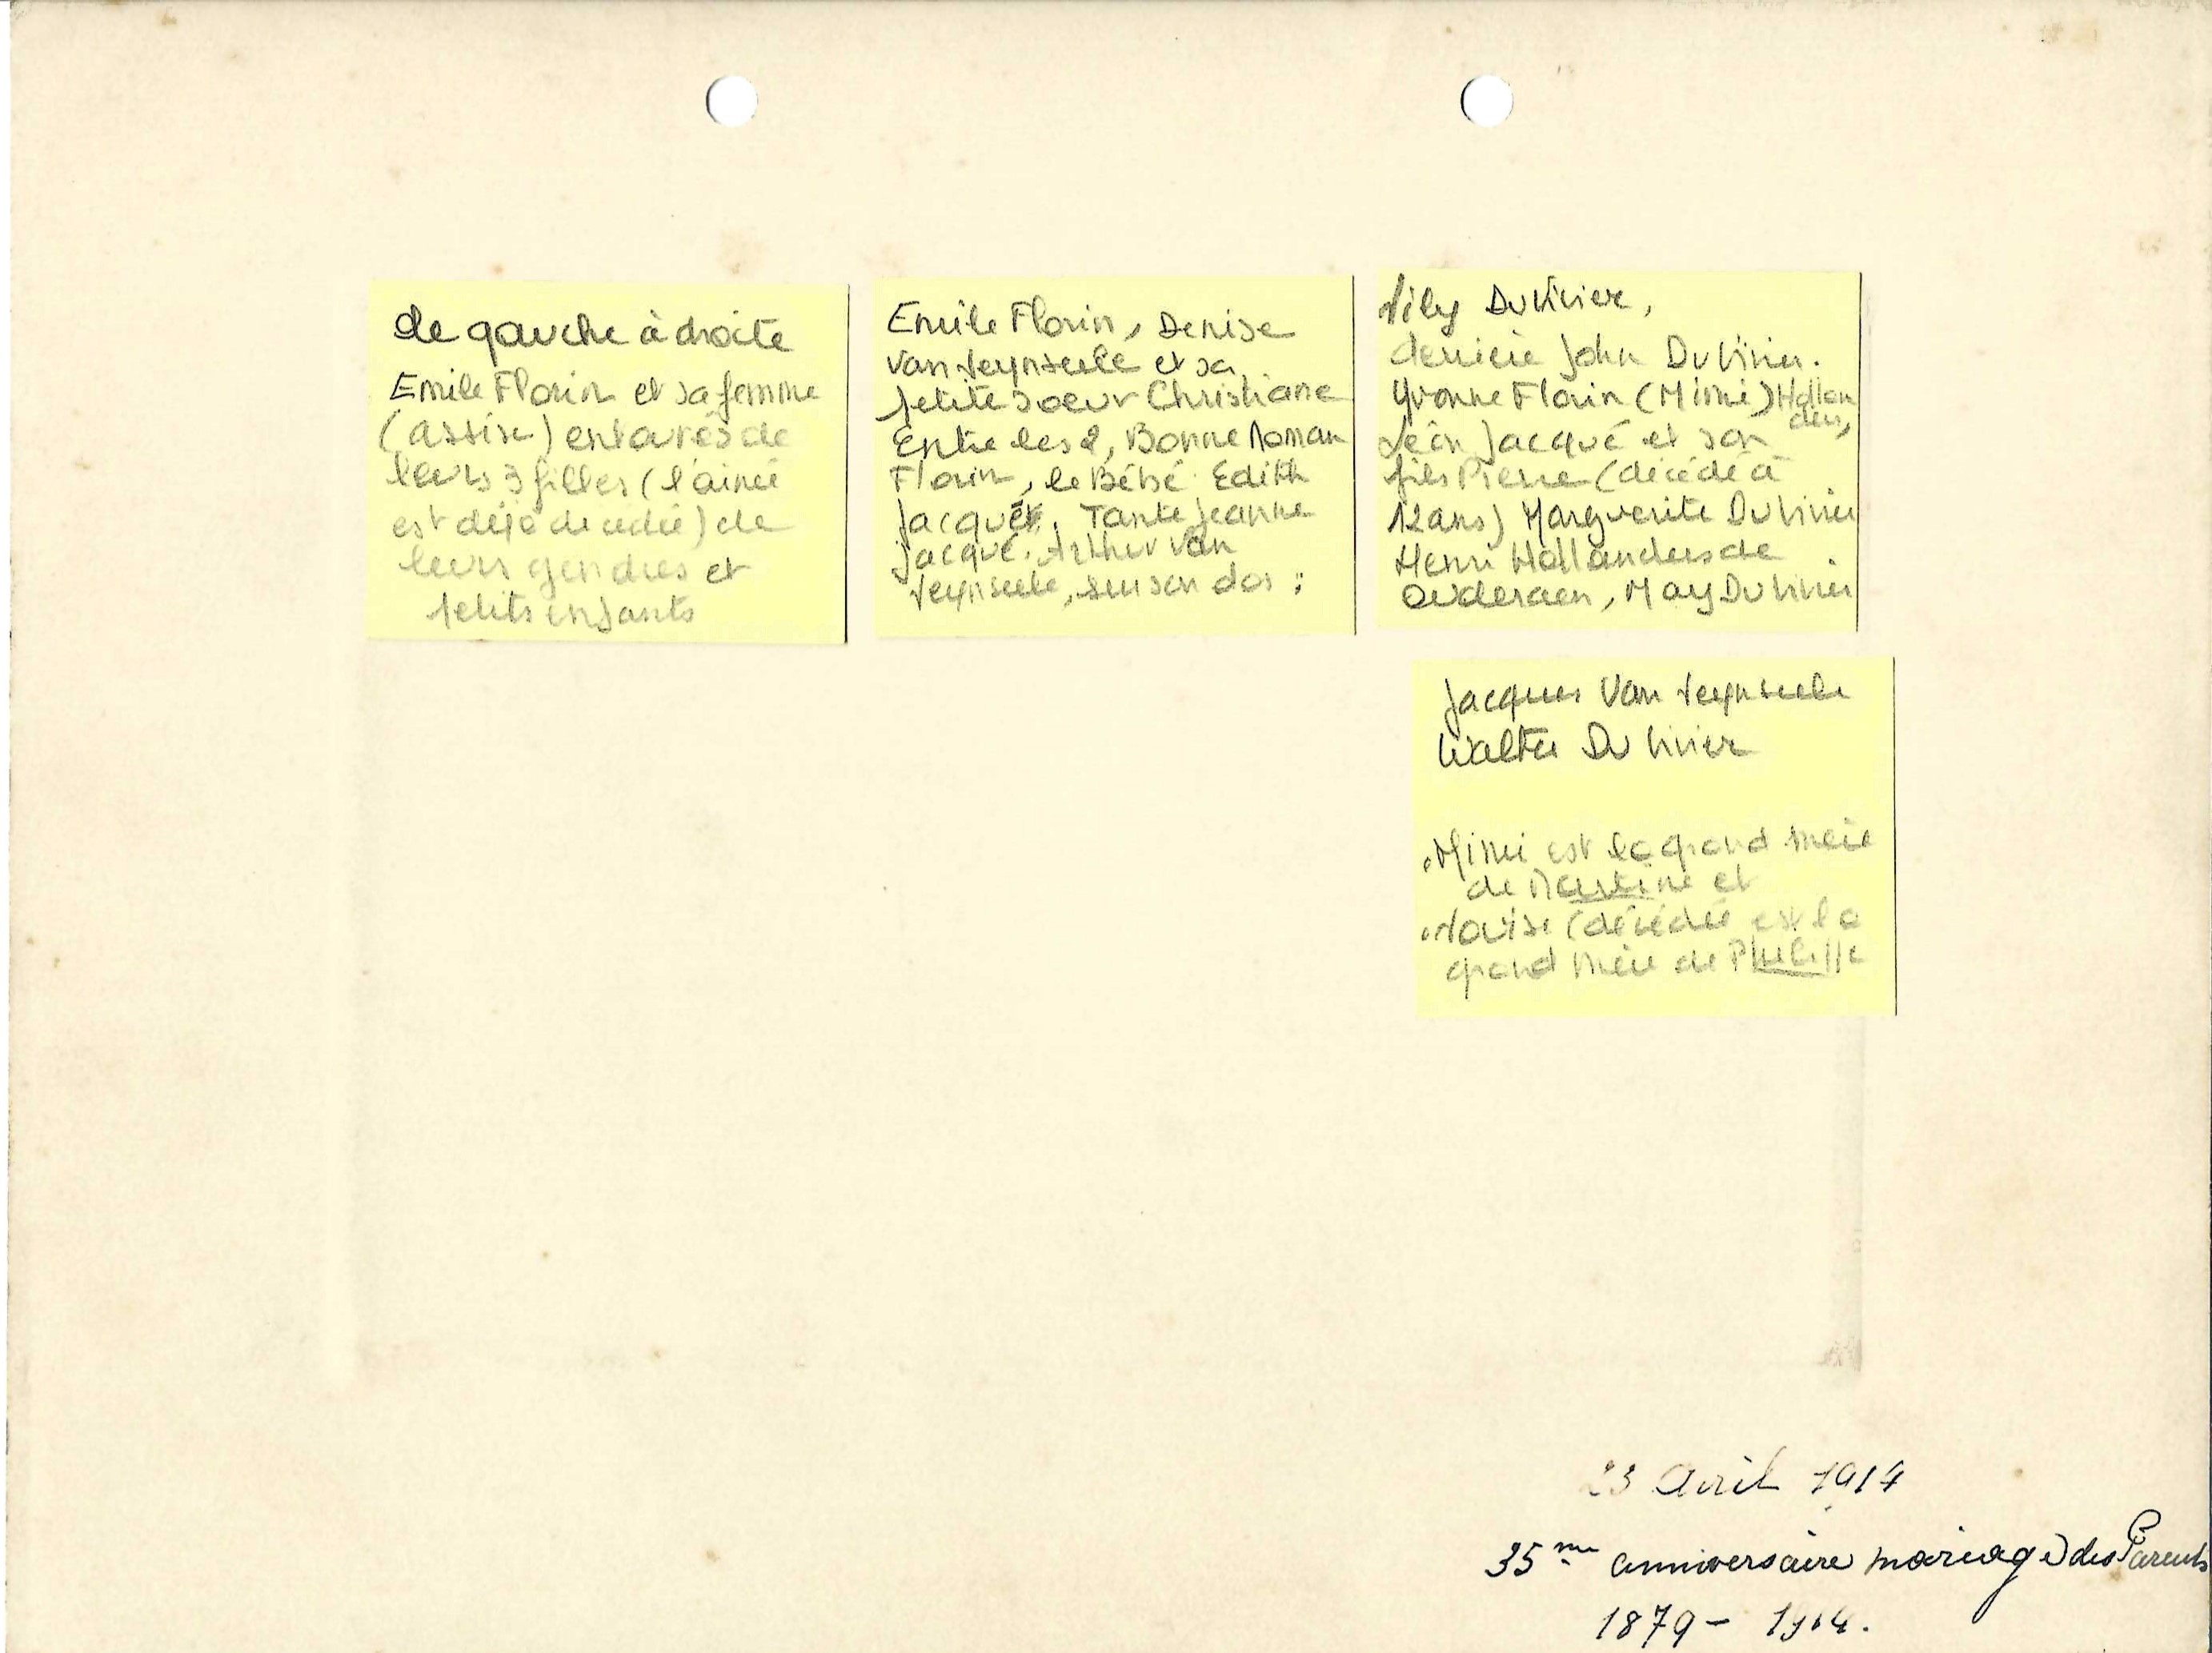 de gauche à droite
Emile Florin et sa femme
(assise) entourés de
leurs 3 filles (l'ainée
est déjà décédée) de
leurs gendres et
petits enfants
Emile Florin, Denise
Van Peynseele et sa
petite soeur Christiane
Entre les 2, Bonne Maman
Florin, le Bébé Edith
Jacqué. Tante Jeanne
Jacqué. Arthur Van
Peynseele, sur son dos :
Lily DuVivier,
derrière John DuVivier.
Yvonne Florin (Mimi) Hollan
ders,
Léon Jacqué et son
fils Pierre (décédé à
12 ans) Marguerite DuVivier
Henri Hollanders de
Ouderaen, May DuVivier
Jacques Van Peynseele
Walter DuVivier
. Mimi est la grand mère
de Martine et
. Louise (décédée est la
grand mère de Philippe
23 Avril 1914
35me anniversaire mariage des Parents
1879 - 1914.